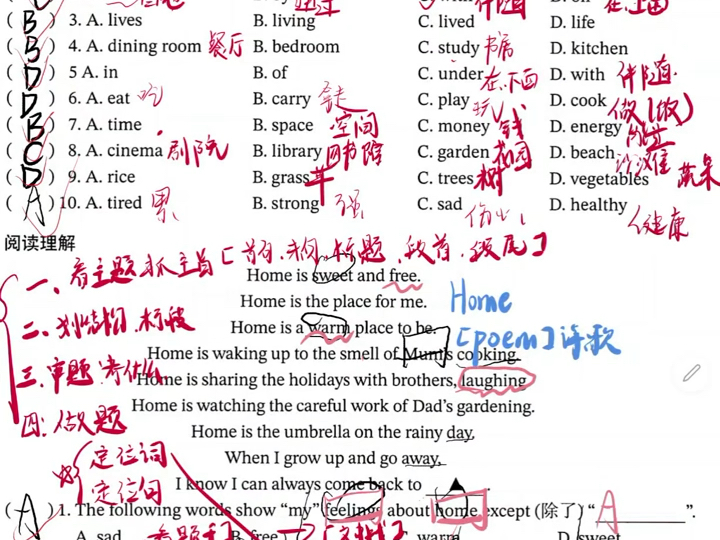 ( B ) 3. A. lives B. living C. lived D. life
( B ) 4. A. dining room 餐厅 B. bedroom C. study 书房 D. kitchen
( D ) 5 A. in B. of C. under 在下面 D. with 伴随
( D ) 6. A. eat 吃 B. carry C. play 玩 D. cook 做(饭)
( B ) 7. A. time B. space 空间 C. money 钱 D. energy
( C ) 8. A. cinema 剧院 B. library 图书馆 C. garden 花园 D. beach 沙滩
( D ) 9. A. rice B. grass 草 C. trees 树 D. vegetables 蔬果
( A ) 10. A. tired 累 B. strong 强 C. sad 伤心 D. healthy 健康
阅读理解
一、看主题 抓主旨
Home is sweet and free.
Home is the place for me.
Home
二、划结构、标段
Home is a warm place to be.
[poem] 诗歌
Home is waking up to the smell of Mum's cooking.
三、审题、考什么
Home is sharing the holidays with brothers, laughing
Home is watching the careful work of Dad's gardening.
四、做题
Home is the umbrella on the rainy day,
定位词
When I grow up and go away,
定位句
I know I can always come back to ▲ .
( A ) 1. The following words show “my” feelings about home except (除了) “ A ”.
A. sad B. free C. warm D. sweet